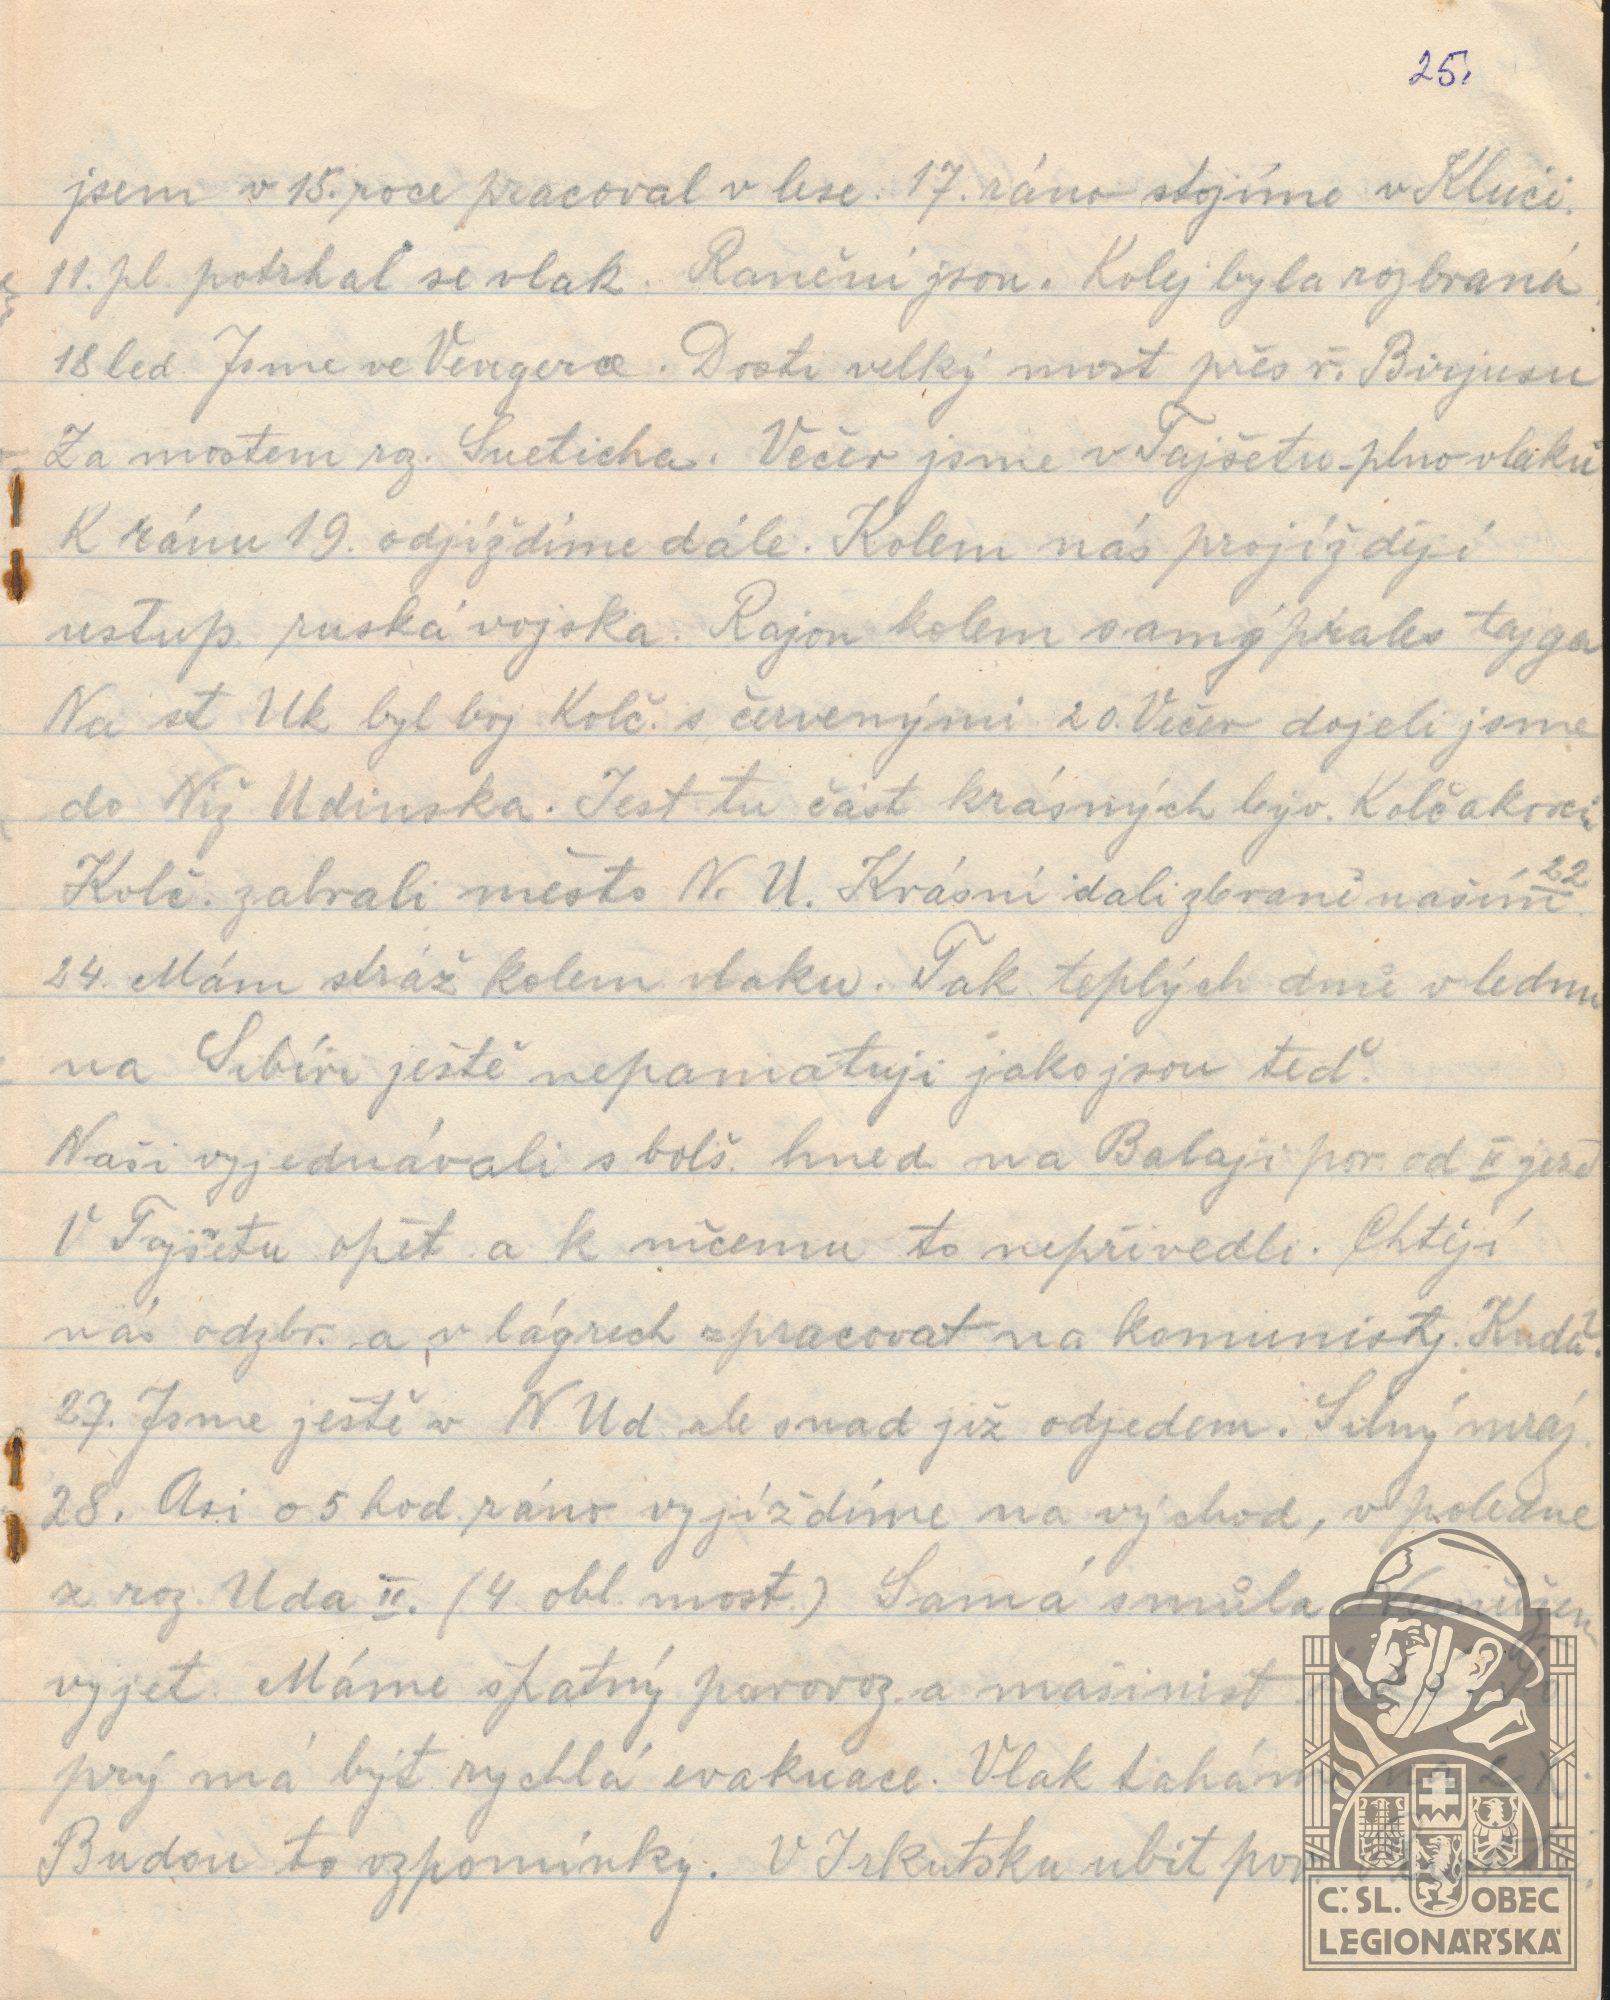 25.
jsem v 15. roce pracoval v lese. 17. ráno stojíme v Kluči.
11. pl. potrhal se vlak. Ranění jsou. Kolej byla rozbraná
18 led. Jsme ve Vengerce. Dosti velký most přes ř. Birjusu
Za mostem rz. Sueticha. Večer jsme v Tajšetu - plno vlaků
K ránu 19. odjíždíme dále. Kolem nás projíždějí
ustup. ruská vojska. Rajon kolem samý prales tajga
Na st Uk byl boj Kolč. s červenými 20. Večer dojeli jsme
do Niž Udinska. Jest tu část krásných býv. Kolčakovci
Kolč. zabrali město N. U. Krásní dali zbraně našim 22
24. Mám stráž kolem vlaku. Tak teplých dnů v lednu
na Sibíři ještě nepamatuji jako jsou teď.
Naši vyjednávali s bolš. hned na Balaji por. od II jezd
V Tajšetu opět a k ničemu to nepřivedli. Chtějí
nás odzbr. a v lágrech zpracovat na komunisty.
27. Jsme ještě v N Ud ale snad již odjedem. Silný mráz.
28. Asi o 5 hod ráno vyjíždíme na východ, v poledne
z roz. Uda II. (4 obl. most.) Samá smůla Nemůžem
vyjet. Máme špatný parovoz a mašinist
prý má být rychlá evakuace. Vlak taháme na 2 X.
Budou to vzpomínky. V Irkutsku ubit por.
Č. SL. OBEC
LEGIONÁŘSKÁ